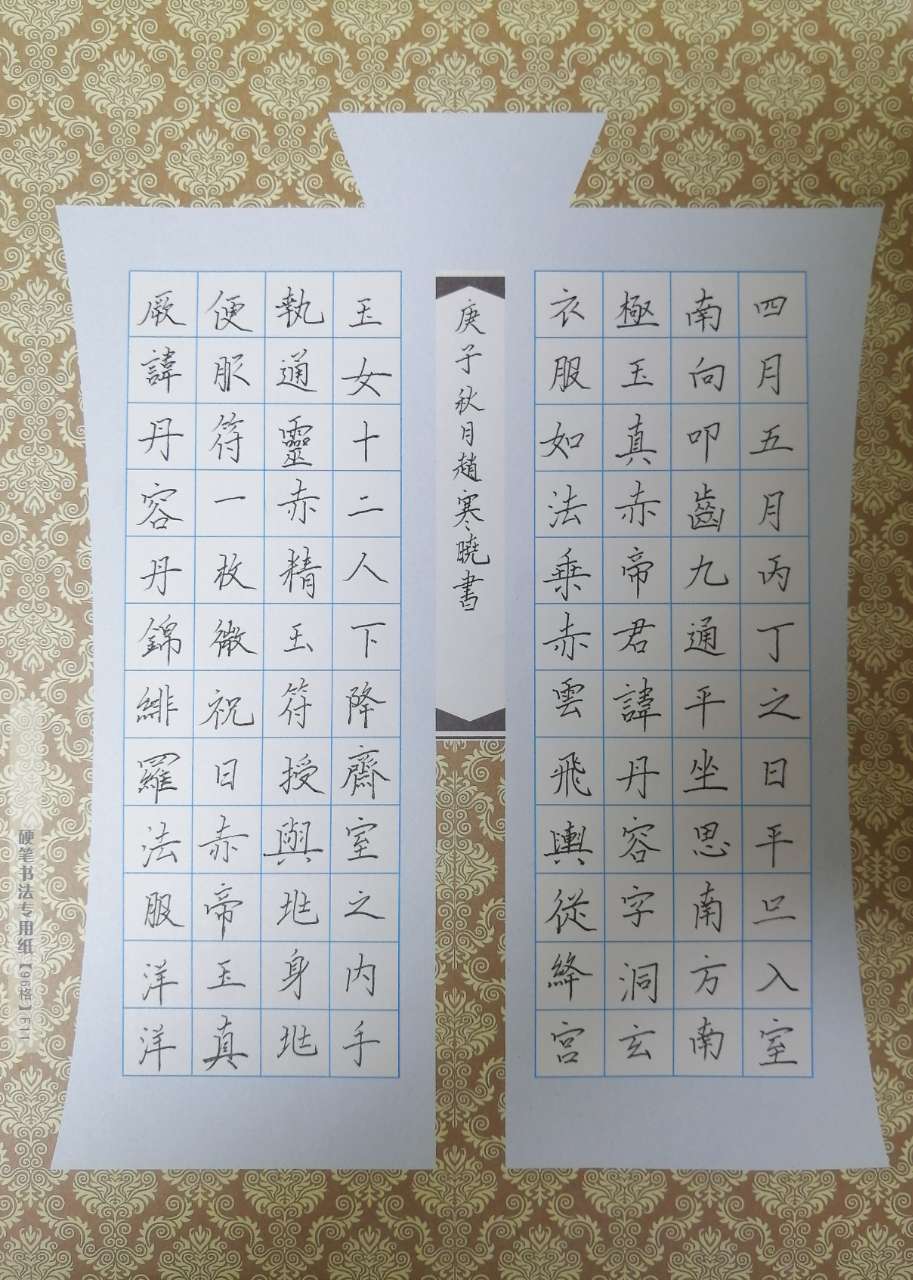 四月五月丙丁之日平旦入室
南向叩齒九通平坐思南方南
極玉真赤帝君諱丹容字洞玄
衣服如法乗赤雲飛輿從絳宮
庚子秋月趙寒曉書
玉女十二人下降齋室之内手
執通靈赤精玉符授與兆身兆
便服符一枚微祝曰赤帝玉真
厥諱丹容丹錦緋羅法服洋洋
硬笔书法专用纸【96格】